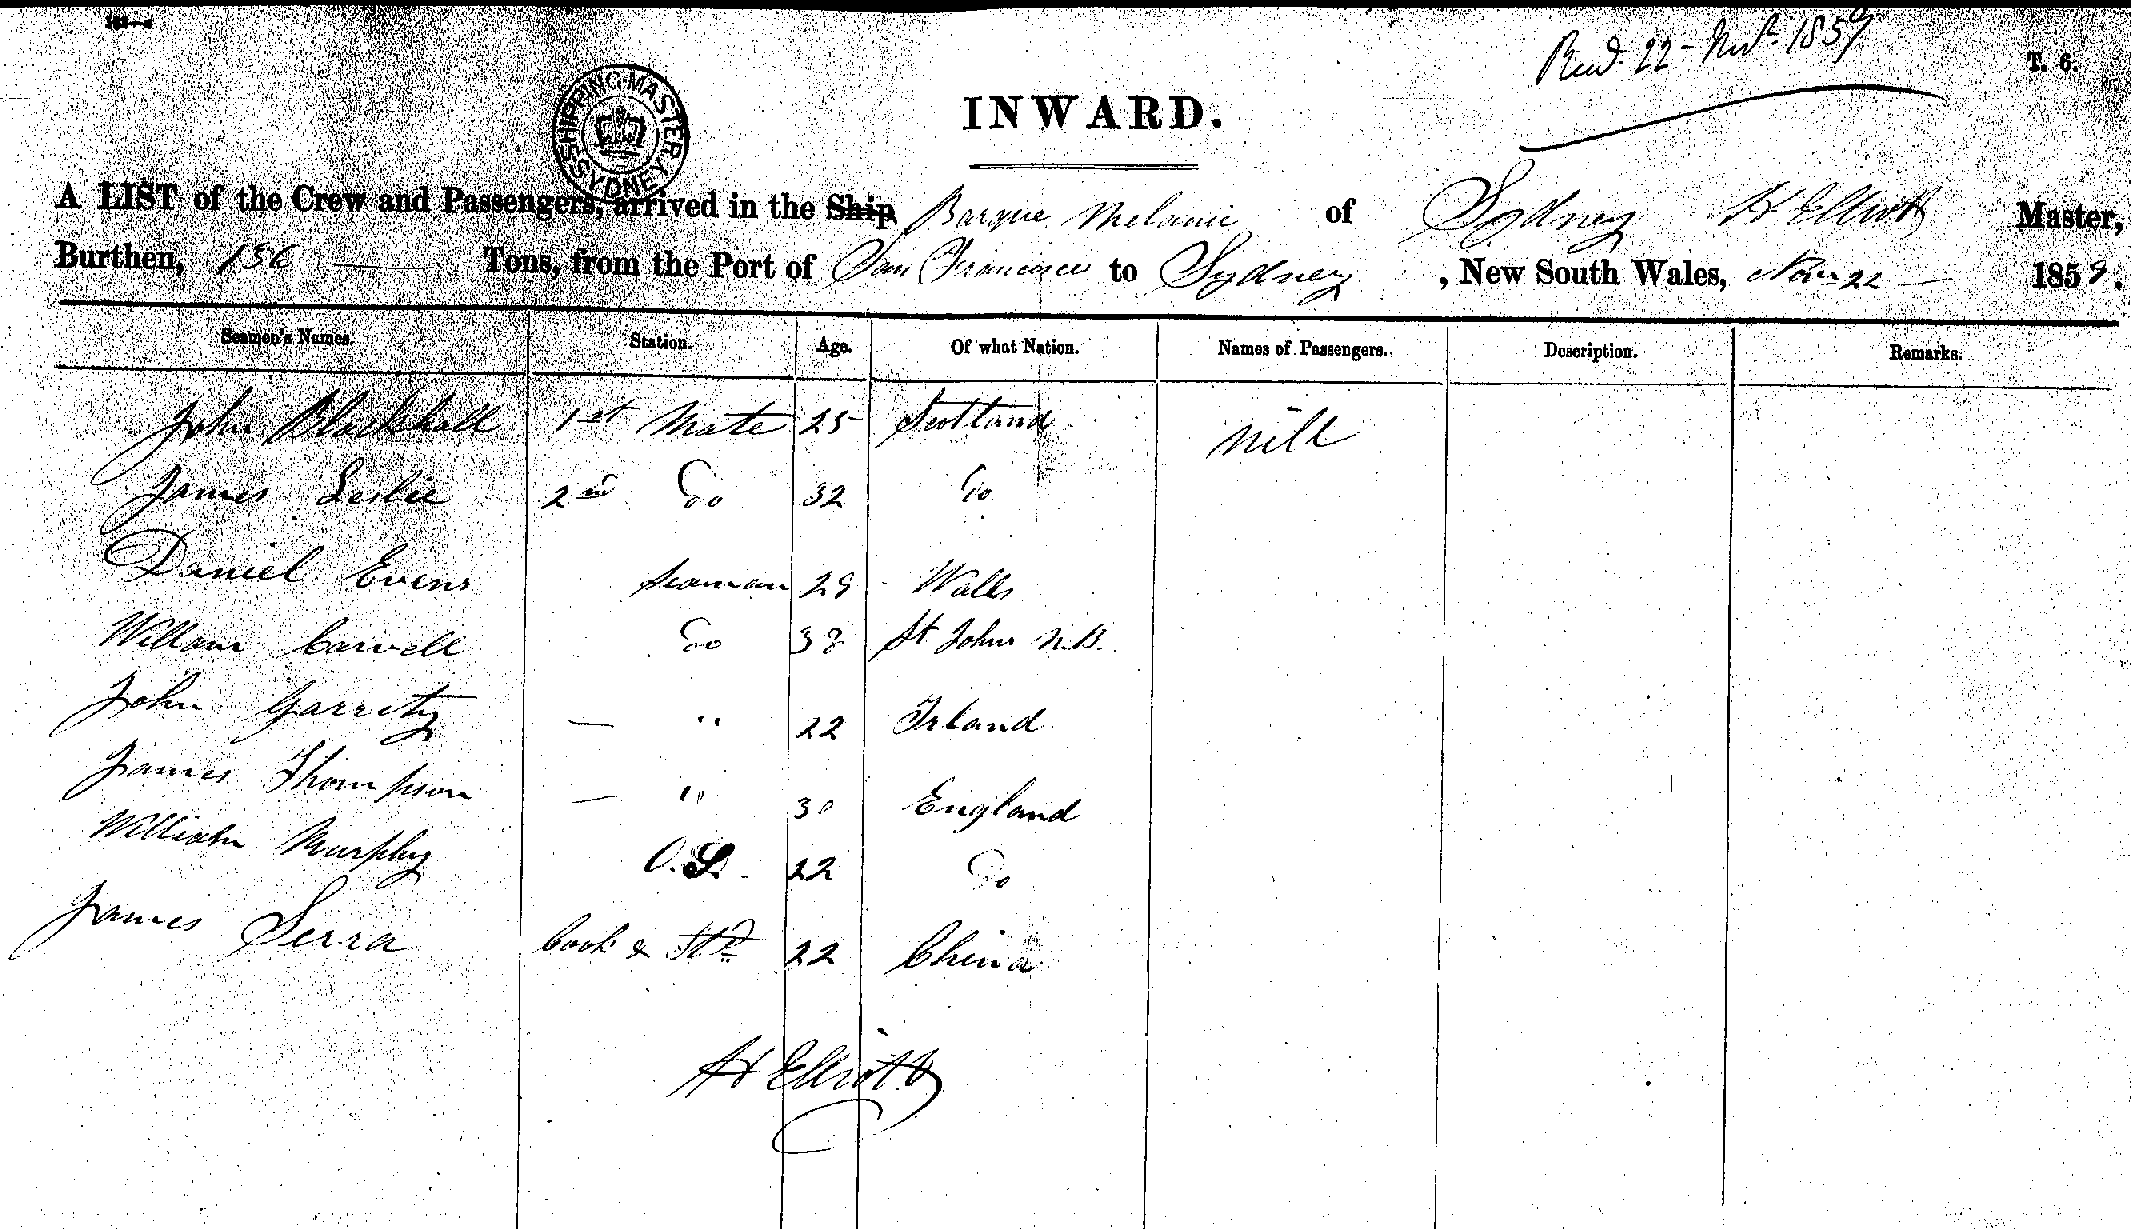 Recd. 22 - Novr. 1859
T. 6.
SHIPPING MASTER SYDNEY
INWARD.
A LIST of the Crew and Passengers, arrived in the Ship Barque Melanie of Sydney H Elliott Master,
Burthen, 156 Tons, from the Port of San Francisco to Sydney, New South Wales, Nov 22 1859.
Seamen's Names. Station. Age. Of what Nation. Names of Passengers. Description. Remarks.
John Blackhall 1st Mate 25 Scotland nill
James Leslie 2nd Do 32 Do
Daniel Evens Seaman 29 Walls
Willam Carvell Do 38 St Johns N.B.
John Garrity — " 22 Irland
James Thompson — " 30 England
William Murphy O.S. 22 Do
James Serra Cook & Std 22 China
H Elliott